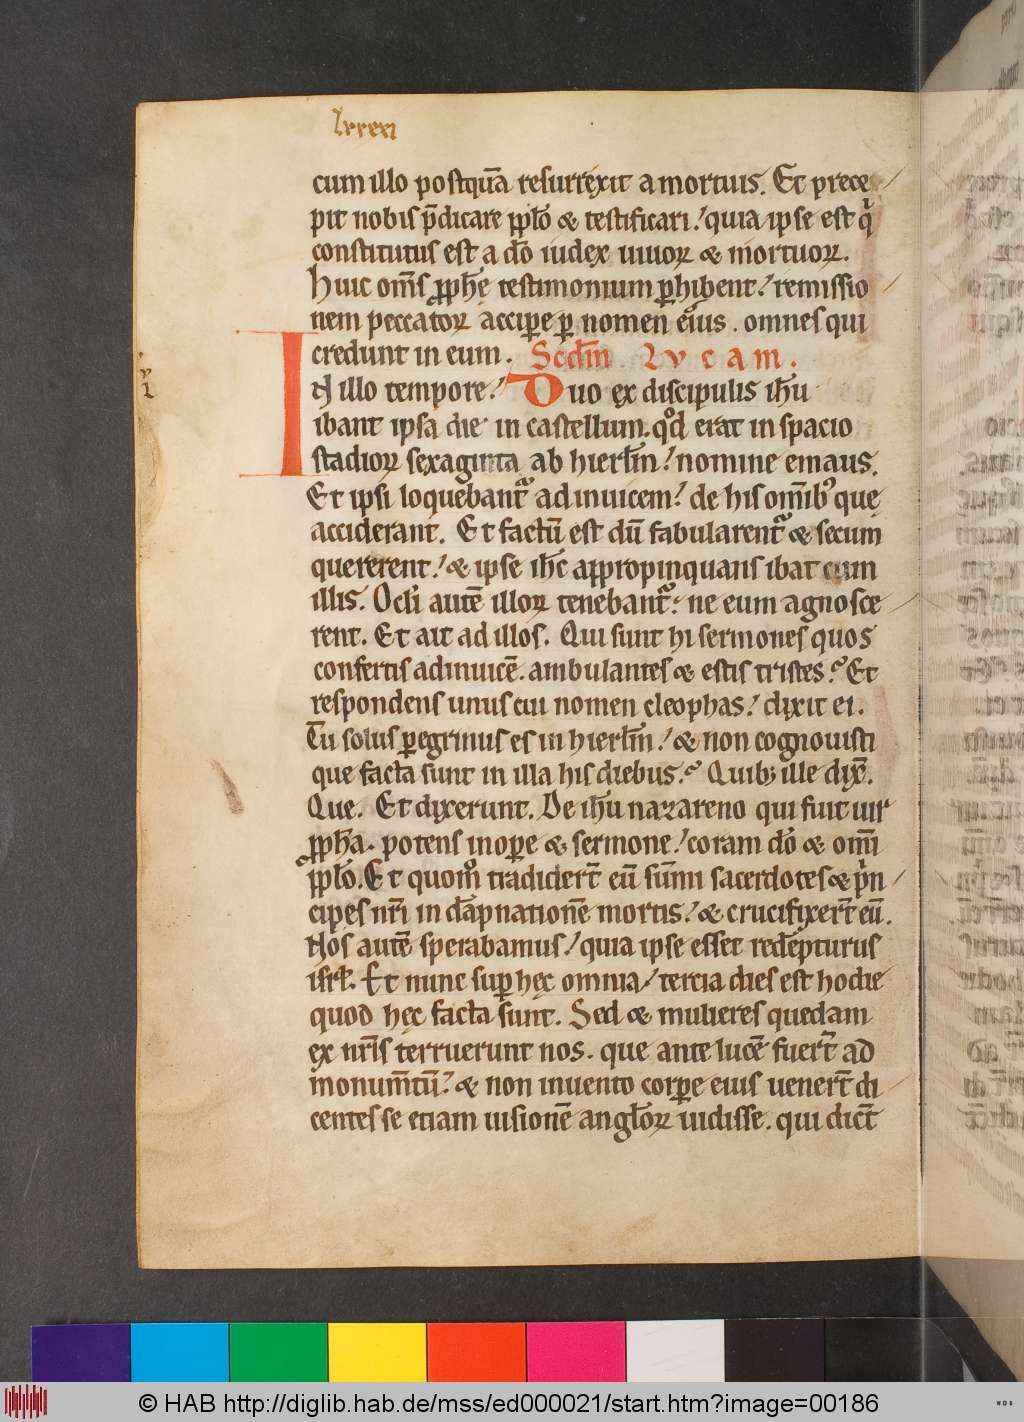 lxxxxi
cum illo postquā resurrexit a mortuis. Et prece
pit nobis p̄dicare pplō & testificari. quia ipse est q̇
constitutus est a dō iudex uiuoꝝ & mortuoꝝ.
Huic om̄s ꝓphē testimonium ꝑhibent. remissio
nem peccatoꝝ accipe ꝑ nomen ei᷒us. omnes qui
credunt in eum. Scdm̄ Lucam.
IN illo tempore. Duo ex discipulis ih̄u
ibant ipsa die in castellum. qd̊ erat in spacio
stadioꝝ sexaginta ab hierl̄m. nomine emaus.
Et ipsi loquebantᷓ adinuicem. de his om̄ibꝰ quę
acciderant. Et factū est dū fabularentᷓ & secum
quererent. & ipse ih̄c appropinquans ibat cum
illis. Ocl̄i autē illoꝝ tenebantᷓ. ne eum agnosce
rent. Et ait ad illos. Qui sunt hi sermones quos
confertis adinuicē. ambulantes & estis tristes. Et
respondens unus cui nomen cleophas. dixit ei.
Tu solus peregrinus es in hierl̄m. & non cognouisti
que facta sunt in illa his diebus. Quibꝫ ille dix̄.
Que. Et dixerunt. De ih̄u nazareno qui fuit uir
ꝓph̄a. potens in oꝑe & sermone. coram dō & om̄i
pplō. Et quom̊ tradider̄t eū sūmi sacerdotes & prin
cipes nr̄i in dāpnationē mortis. & crucifixer̄t eū.
Nos autē sperabamus. quia ipse esset redēpturus
isrl̄. Et nunc suꝑ hęc omnia. tercia dies est hodie
quod hęc facta sunt. Sed & mulieres quedam
ex nr̄is terruerunt nos. que ante lucē fuer̄t ad
monum̄tū. & non inuento corꝑe eius uener̄t di
centes se etiam uisionē angl̄oꝝ uidisse. qui dict̄
© HAB http://diglib.hab.de/mss/ed000021/start.htm?image=00186